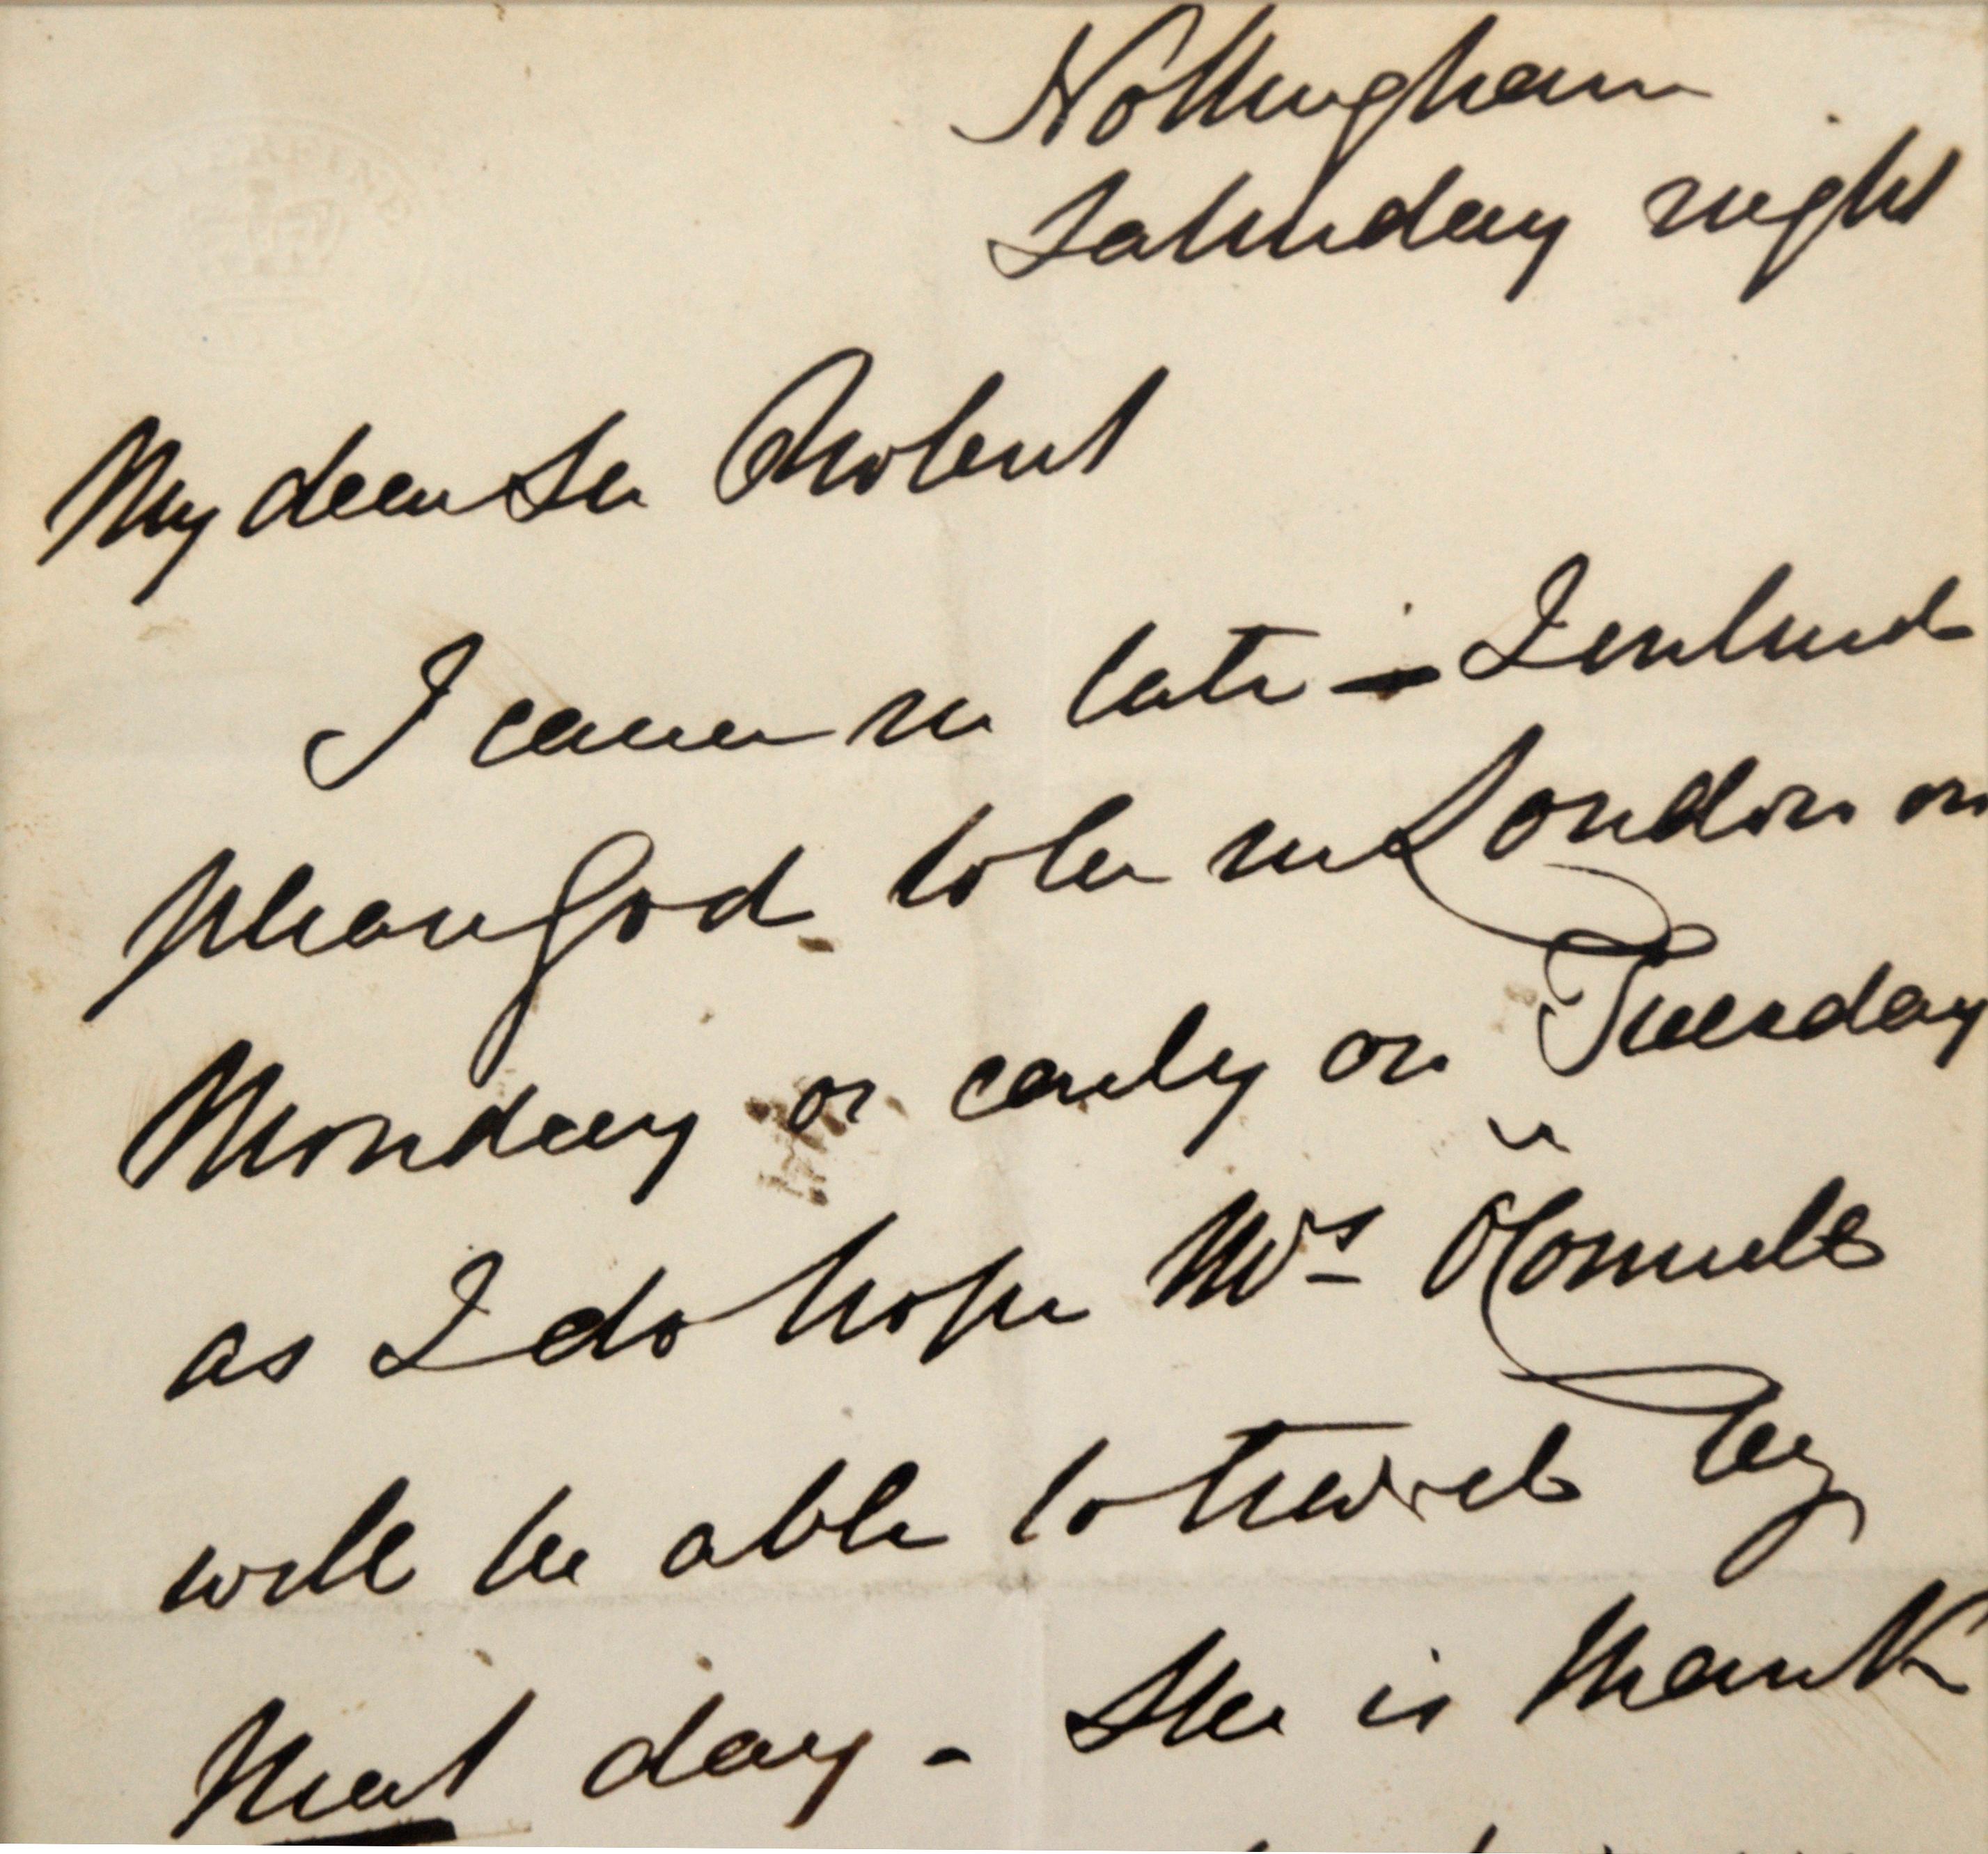 Nottingham
Saturday night
My dear Sir Robert
I came in late - I intend
please God to be in London on
Monday or early on Tuesday
as I do hope Mrs
will be able to travel by
that day - She is thank